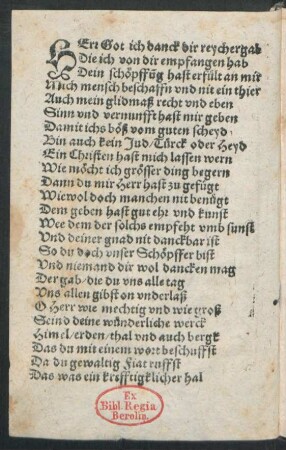 HErr Got ich danck dir reycher gab
Die ich von dir empfangen hab
Dein schöpffūg hast erfült an mir
Mich mensch beschaffn vnd nit ein thier
Auch mein glidmaß recht vnd eben
Sinn vnd vernunfft hast mir geben
Damit ichs böß vom guten scheyd
Bin auch kein Jud/Türck oder Heyd
Ein Christen hast mich lassen wern
Wie möcht ich grösser ding begern
Dann du mir Herr hast zu gefügt
Wiewol doch manchen nit benügt
Dem geben hast gut eht vnd kunst
Wee dem der solchs empfeht vmb sunst
Vnd deiner gnad nit danckbar ist
So du doch vnser Schöpffer bist
Vnd niemand dir wol dancken mag
Der gab/die du vns alle tag
Vns allen gibst on vnderlaß
O Herr wie mechtig vnd wie groß
Seind deine wünderliche werck
Himel/erden/thal vnd auch bergk
Das du mit einem wort beschuffst
Da du gewaltig Fiat ruffst
Das was ein krefftigklicher hal
Ex
Bibl. Regia
Berolin.